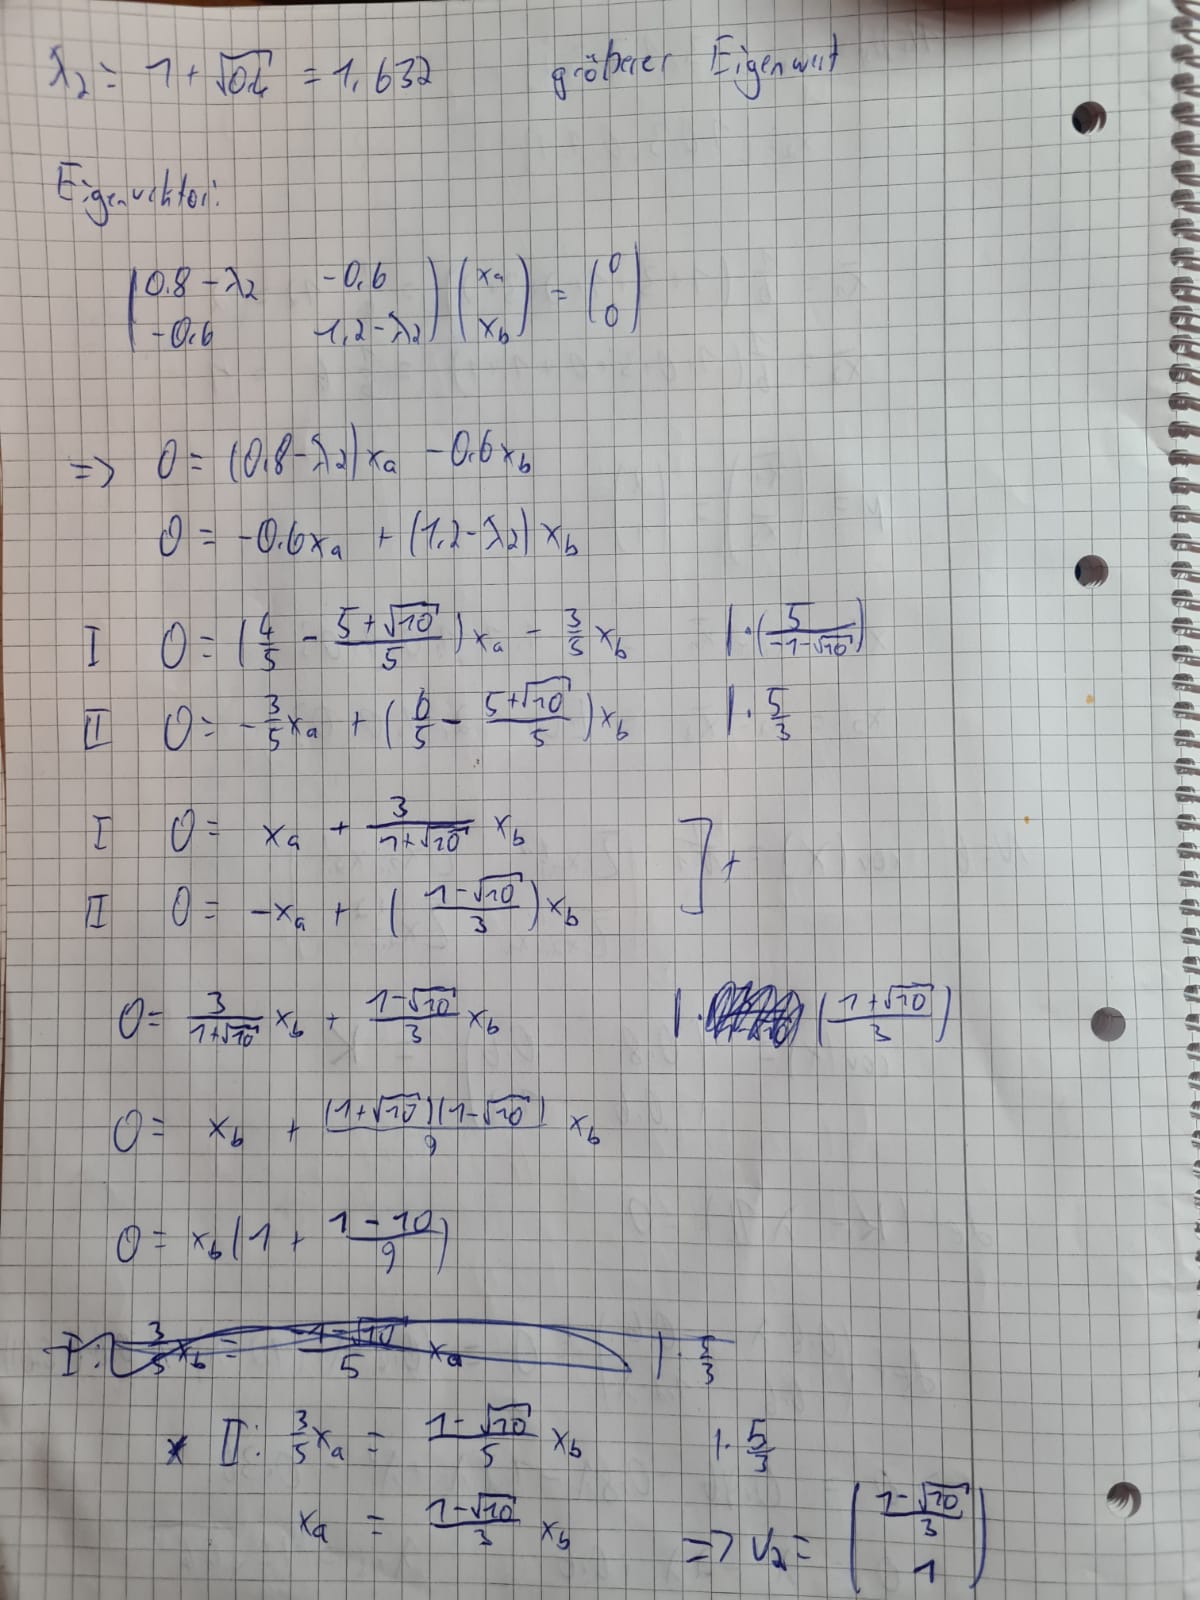 λ₂ = 1 + √0.4 = 1,632 größerer Eigenwert
Eigenvektor:
(0.8 - λ₂ -0.6) (xₐ) = (0)
(-0.6 1,2 - λ₂) (x_b) (0)
=> 0 = (0.8 - λ₂)xₐ - 0.6x_b
0 = -0.6xₐ + (1.2 - λ₂)x_b
I 0 = (4/5 - (5+√10)/5)xₐ - 3/5 x_b |·(5/(-1-√10))
II 0 = -3/5 xₐ + (6/5 - (5+√10)/5)x_b |·5/3
I 0 = xₐ + 3/(1+√10) x_b ] +
II 0 = -xₐ + ((1-√10)/3)x_b
0 = 3/(1+√10) x_b + (1-√10)/3 x_b |· ((1+√10)/3)
0 = x_b + (1+√10)(1-√10)/9 x_b
0 = x_b(1 + (1-10)/9)
I: 3/5 x_b = (-1-√10)/5 xₐ |·5/3
* II: 3/5 xₐ = (1-√10)/5 x_b |·5/3
xₐ = (1-√10)/3 x_b => v₂ = ((1-√10)/3
1)